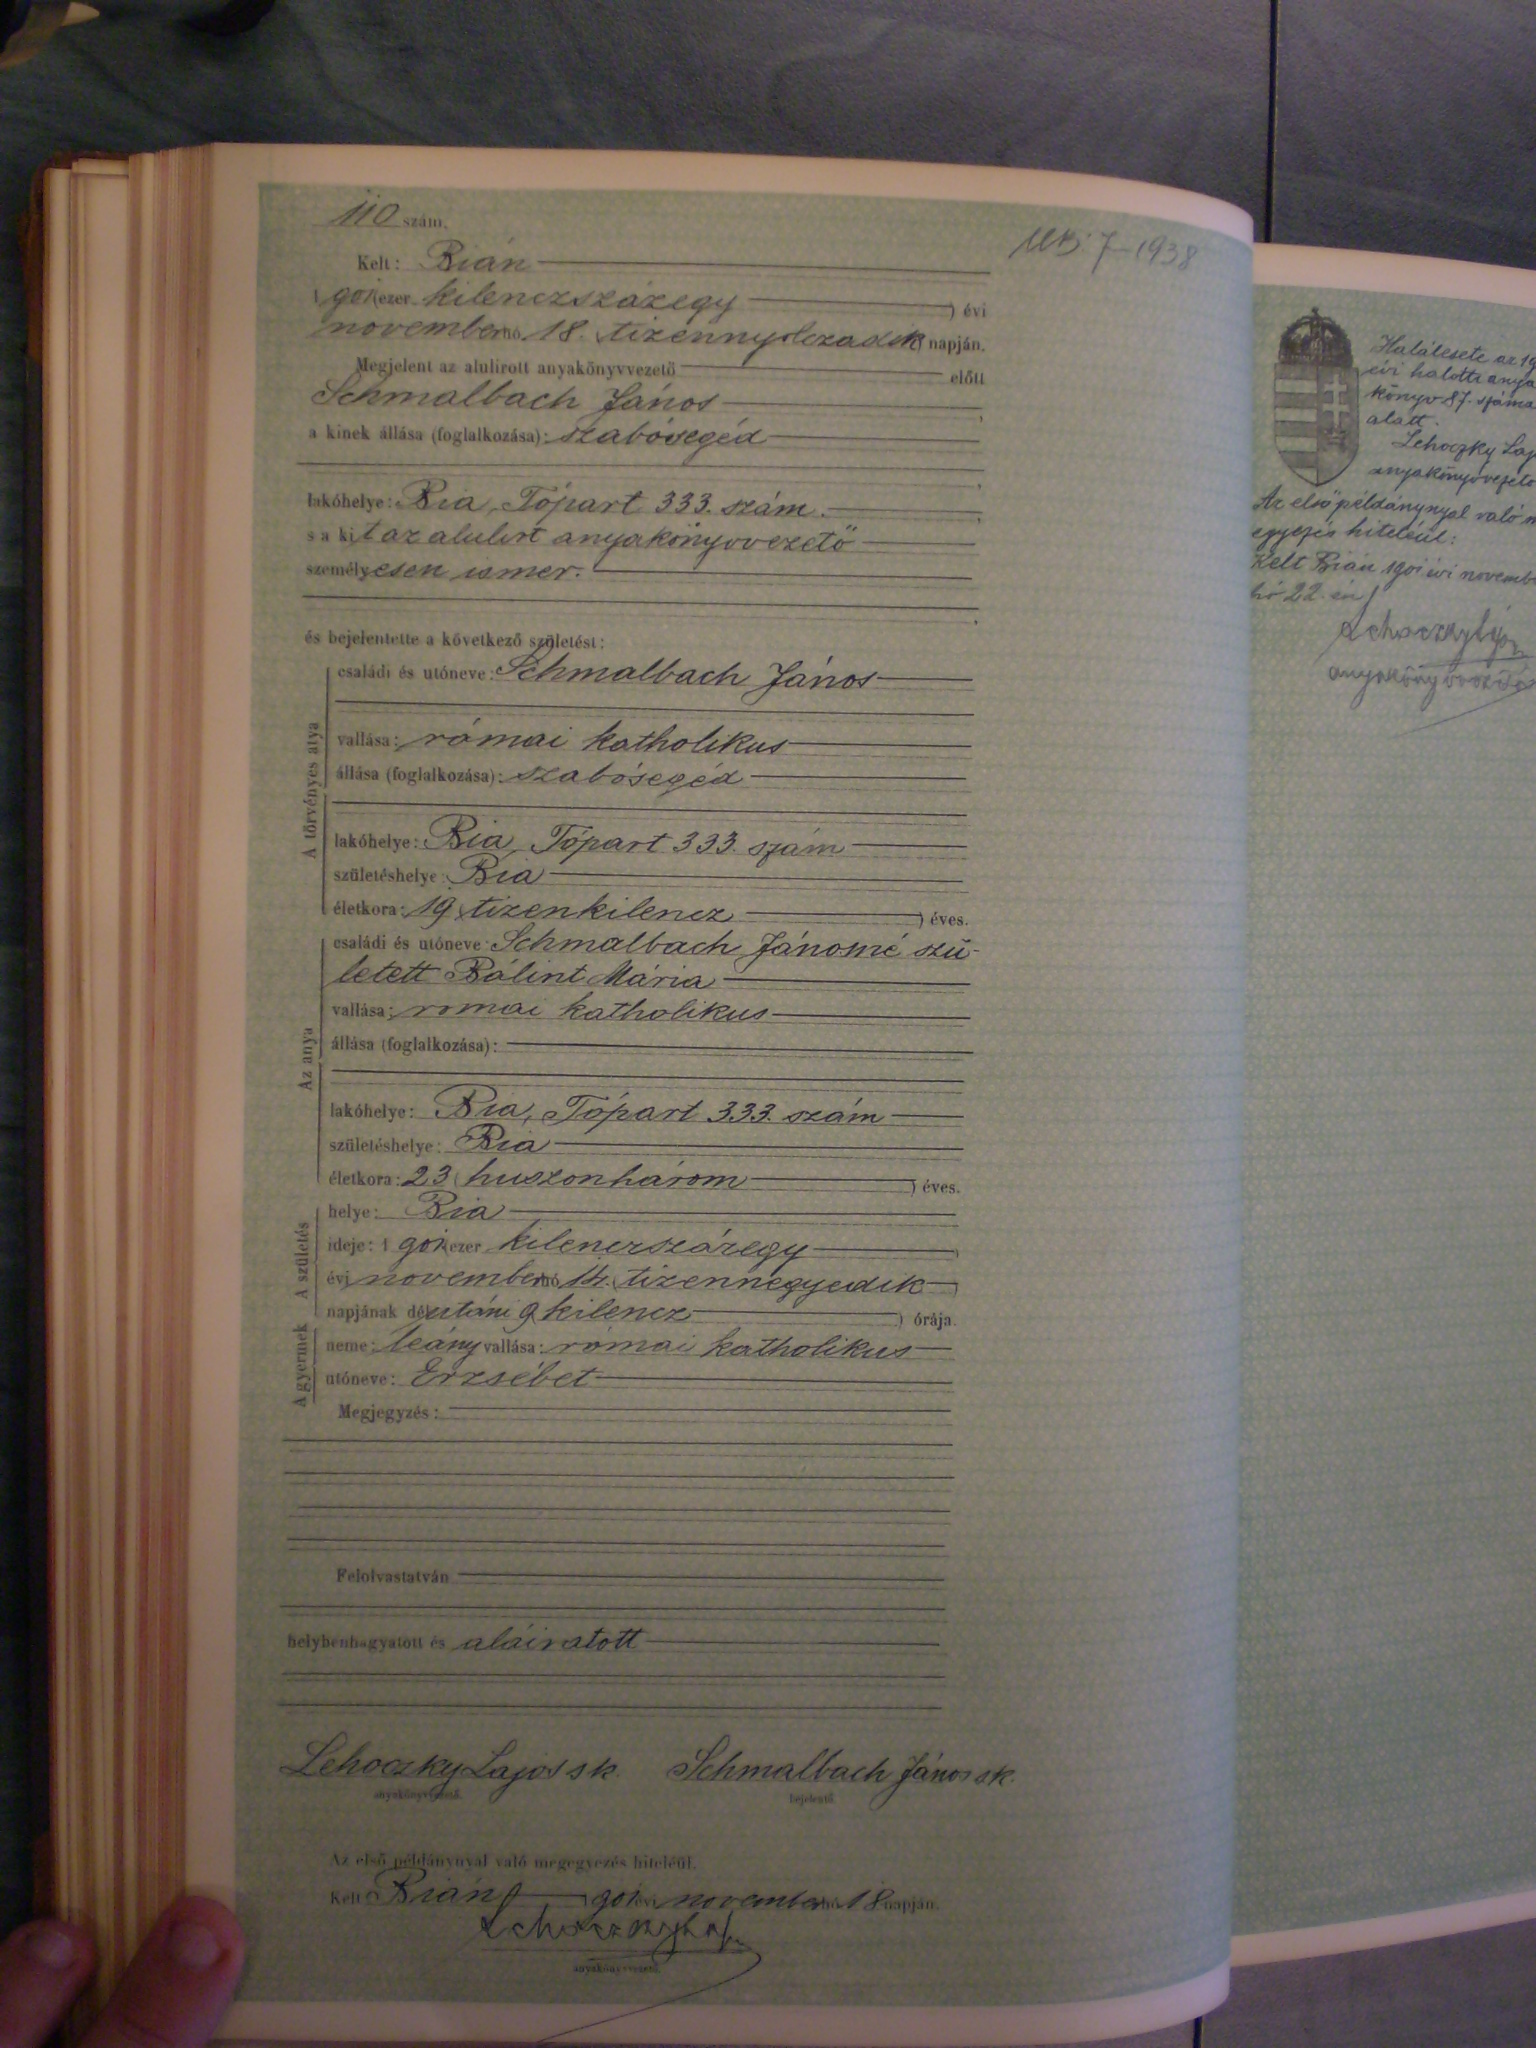 110 szám.
Kelt: Bián
1901 (ezer kilenczszázegy) évi
november hó 18. (tizennyolczadik) napján.
Megjelent az alulirott anyakönyvvezető előtt
Schmalbach János,
a kinek állása (foglalkozása): szabósegéd
lakóhelye: Bia, Tópart 333. szám.
s a kit az alulirt anyakönyvvezető
személyesen ismer.
és bejelentette a következő születést:
A törvényes atya
családi és utóneve: Schmalbach János
vallása: római katholikus
állása (foglalkozása): szabósegéd
lakóhelye: Bia, Tópart 333. szám
születéshelye: Bia
életkora: 19 (tizenkilencz) éves.
Az anya
családi és utóneve: Schmalbach Jánosné szü-
letett Bálint Mária
vallása: romai katholikus
állása (foglalkozása):
lakóhelye: Bia, Tópart 333. szám
születéshelye: Bia
életkora: 23 (huszonhárom) éves.
A születés
helye: Bia
ideje: 1901 (ezer kilenczszázegy)
évi november hó 14. (tizennegyedik)
napjának délutáni 9 (kilencz) órája.
A gyermek
neme: leány vallása: római katholikus
utóneve: Erzsébet
Megjegyzés:
Felolvastatván
helybenhagyatott és aláiratott
Lehoczky Lajos sk. Schmalbach János sk.
anyakönyvvezető. bejelentő.
Az első példánynyal való megegyezés hiteléül.
Kelt Bián, 1901 évi november hó 18 napján.
Lehoczky Laj
anyakönyvvezető.
7-1938
Halálesete az 19
évi halotti anya
könyv 87. száma
alatt.
Lehoczky Laj
anyakönyvvezető
Az első példánynyal való m
egyezés hiteléül:
Kelt Bián 1901 évi novemb
hó 22-én
Lehoczky Laj
anyakönyvvezető